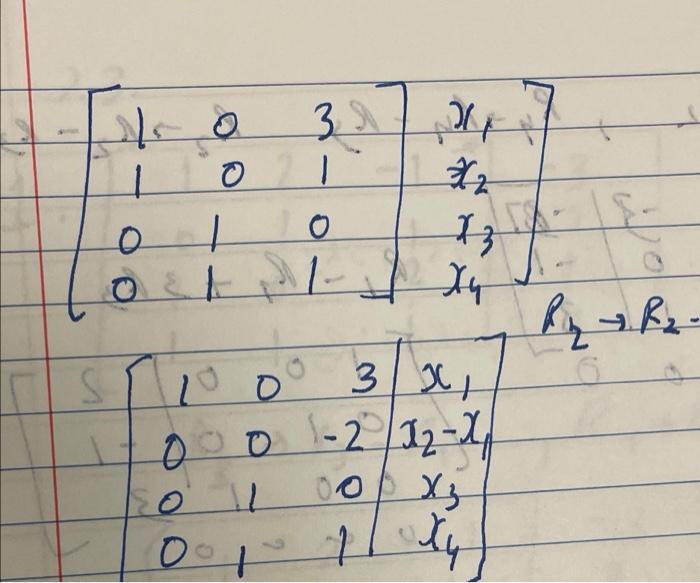 1 0 3 x₁
1 0 1 x₂
0 1 0 x₃
0 1 1 x₄
R₂ → R₂ -
1 0 3 x₁
0 0 -2 x₂-x₁
0 1 0 x₃
0 1 1 x₄